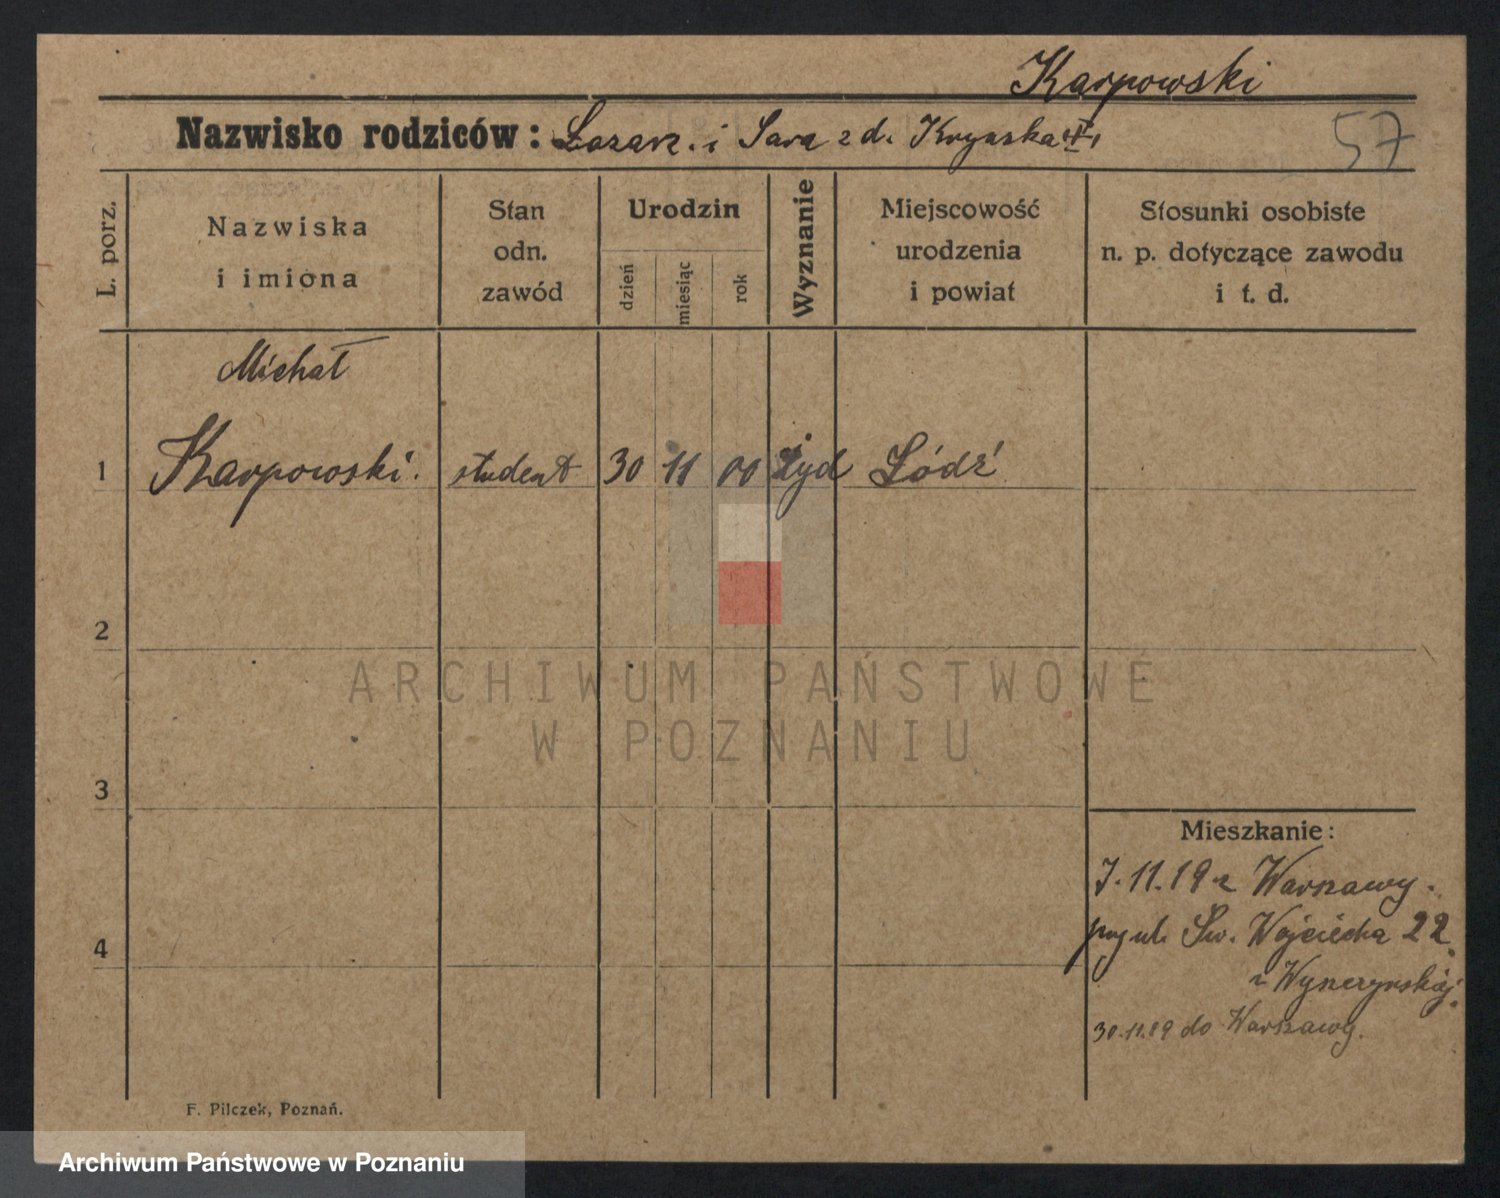 Karpowski
Nazwisko rodziców: Łazarz. i Sara z d.
57
L. porz.
Nazwiska
i imiona
Stan
odn.
zawód
Urodzin
dzień
miesiąc
rok
Wyznanie
Miejscowość
urodzenia
i powiat
Stosunki osobiste
n. p. dotyczące zawodu
i t. d.
Michał
1 Karpowski. student 30 11 00 Żyd Łódź
2
ARCHIWUM PAŃSTWOWE
W POZNANIU
3
Mieszkanie:
7.11.19 z Warszawy.
4
przy ul. Św. Wojciecha 22.
u Wyszczyńskiej.
30.11.19 do Warszawy.
F. Pilczek, Poznań.
Archiwum Państwowe w Poznaniu